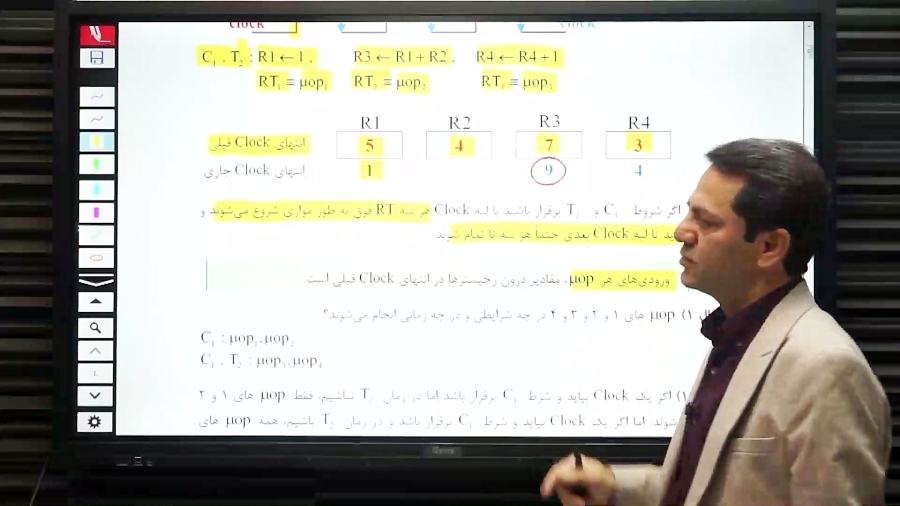 clock clock
C₁ . T₂ : R1 ← 1 , R3 ← R1 + R2 . R4 ← R4 + 1
RT₁ ≡ μop₁ RT₂ ≡ μop₂ RT₃ ≡ μop₃
R1 R2 R3 R4
انتهای Clock قبلی 5 4 7 3
انتهای Clock جاری 1 9 4
اگر شروط C₁ و T₂ برقرار باشند با لبه Clock هر سه RT فوق به طور موازی شروع می‌شوند و
تا لبه Clock بعدی حتماً هر سه تا تمام شوند.
ورودی‌های هر μop، مقادیر درون رجیسترها در انتهای Clock قبلی است.
۱) μop های ۱ و ۲ و ۳ و ۴ در چه شرایطی و در چه زمانی انجام می‌شوند؟
C₁ : μop₁,μop₂
C₁ . T₂ : μop₃,μop₄
۱) اگر یک Clock بیاید و شرط C₁ برقرار باشد اما در زمان T₂ نباشیم، فقط μop های ۱ و ۲
شوند. اما اگر یک Clock بیاید و شرط C₁ برقرار باشد و در زمان T₂ باشیم، همه μop های